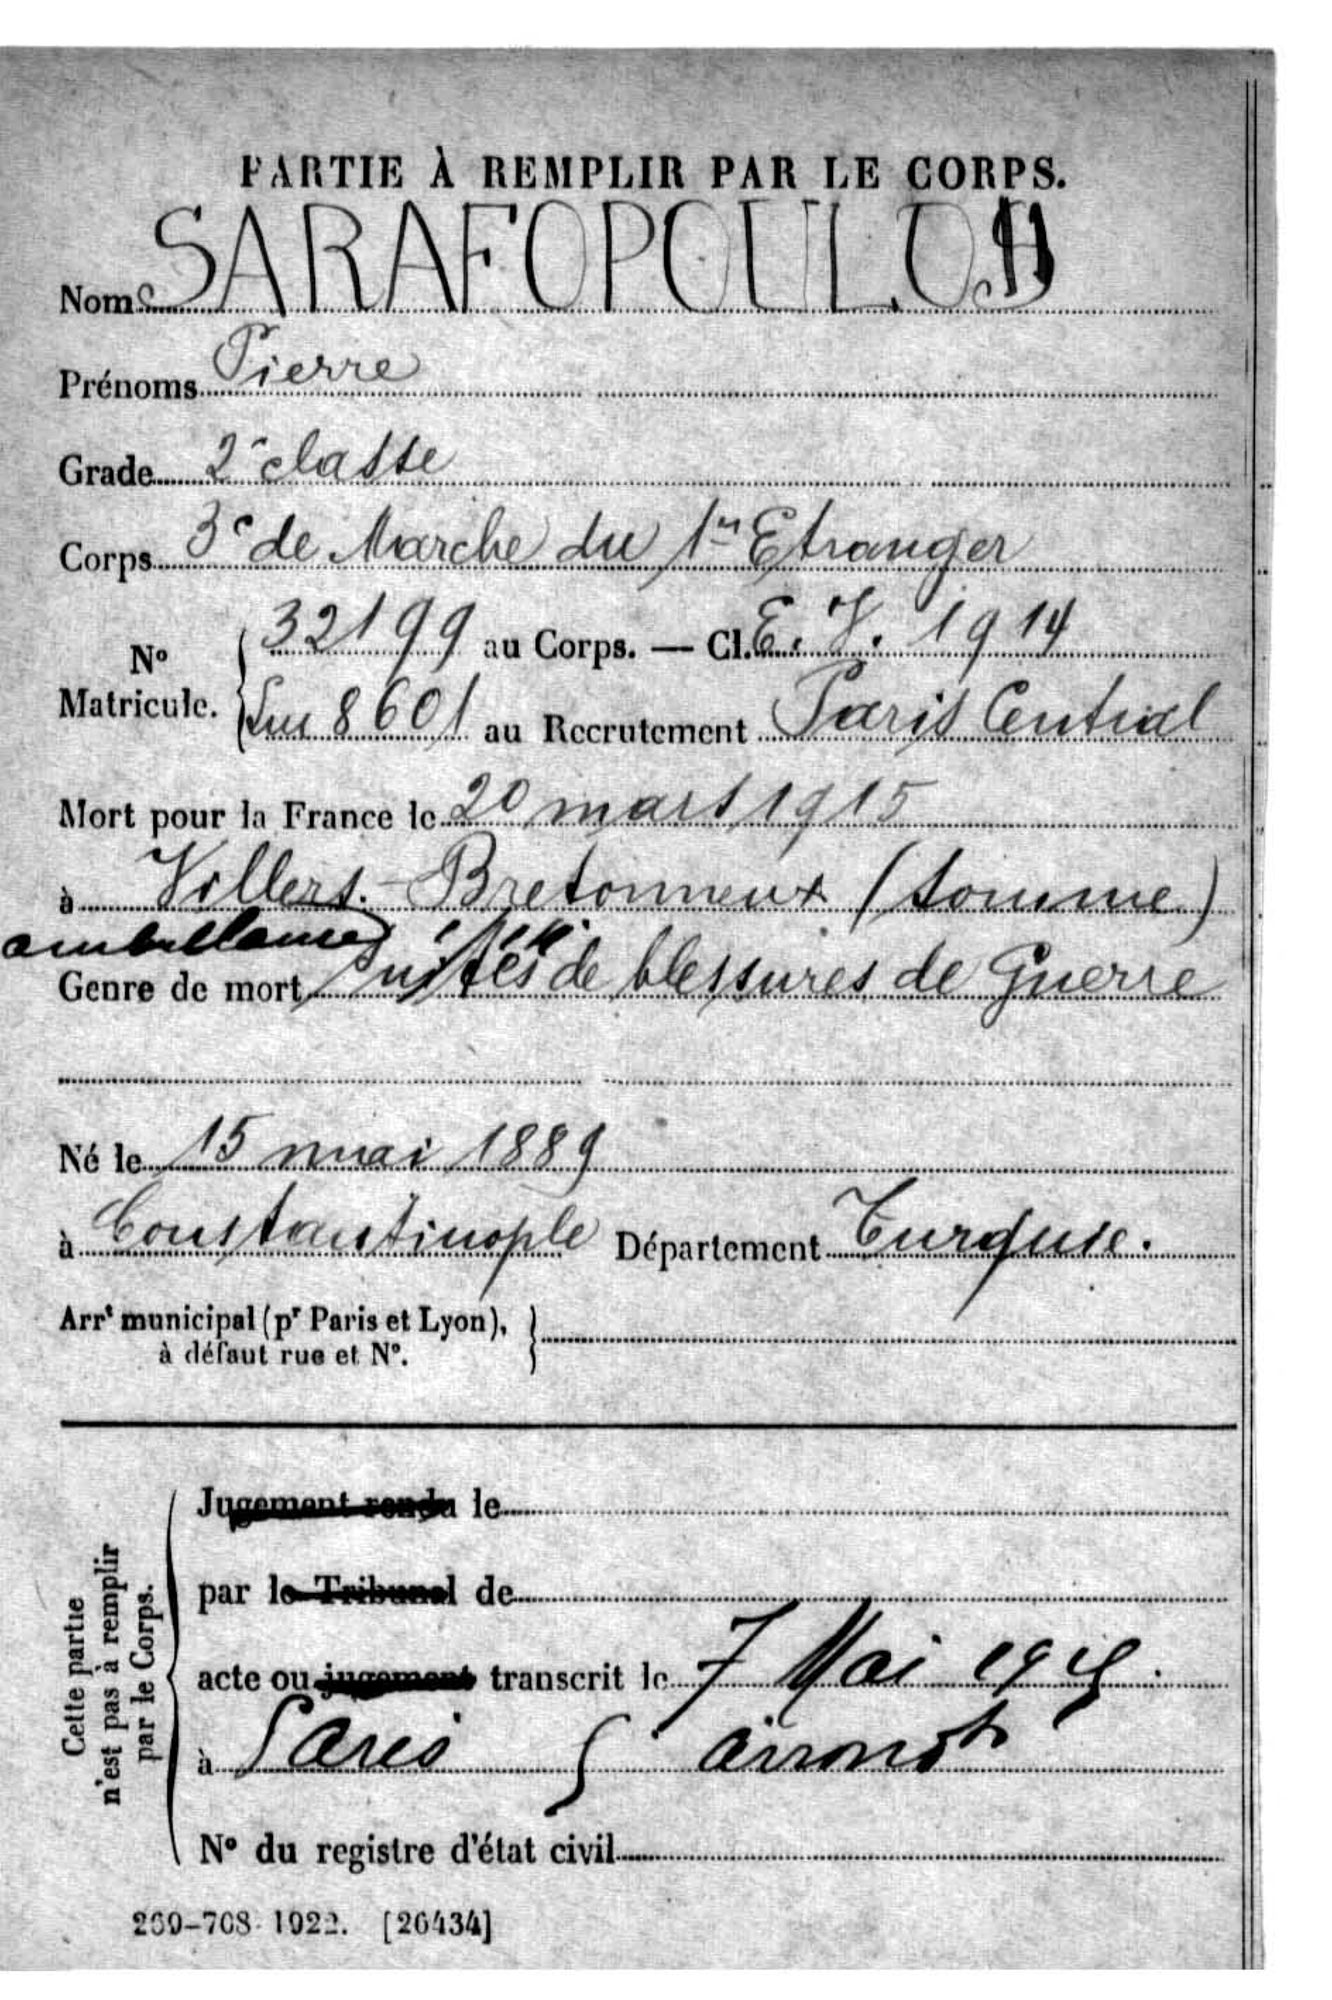 PARTIE À REMPLIR PAR LE CORPS.
Nom SARAFOPOULO
Prénoms Pierre
Grade 2e classe
Corps 3e de Marche du 1er Etranger
No Matricule. 32199 au Corps. — Cl. E. V. 1914
8601 au Recrutement Paris Central
Mort pour la France le 20 mars 1915
à Villers-Bretonneux (Somme)
ambulance
Genre de mort Suites de blessures de Guerre
Né le 15 mai 1889
à Constantinople Département Turquie.
Arrt municipal (pr Paris et Lyon),
à défaut rue et No.
Cette partie
n'est pas à remplir
par le Corps.
Jugement rendu le
par le Tribunal de
acte ou jugement transcrit le 7 Mai 1915.
à Paris 5 arrondt
No du registre d'état civil
269-708-1922. [26434]